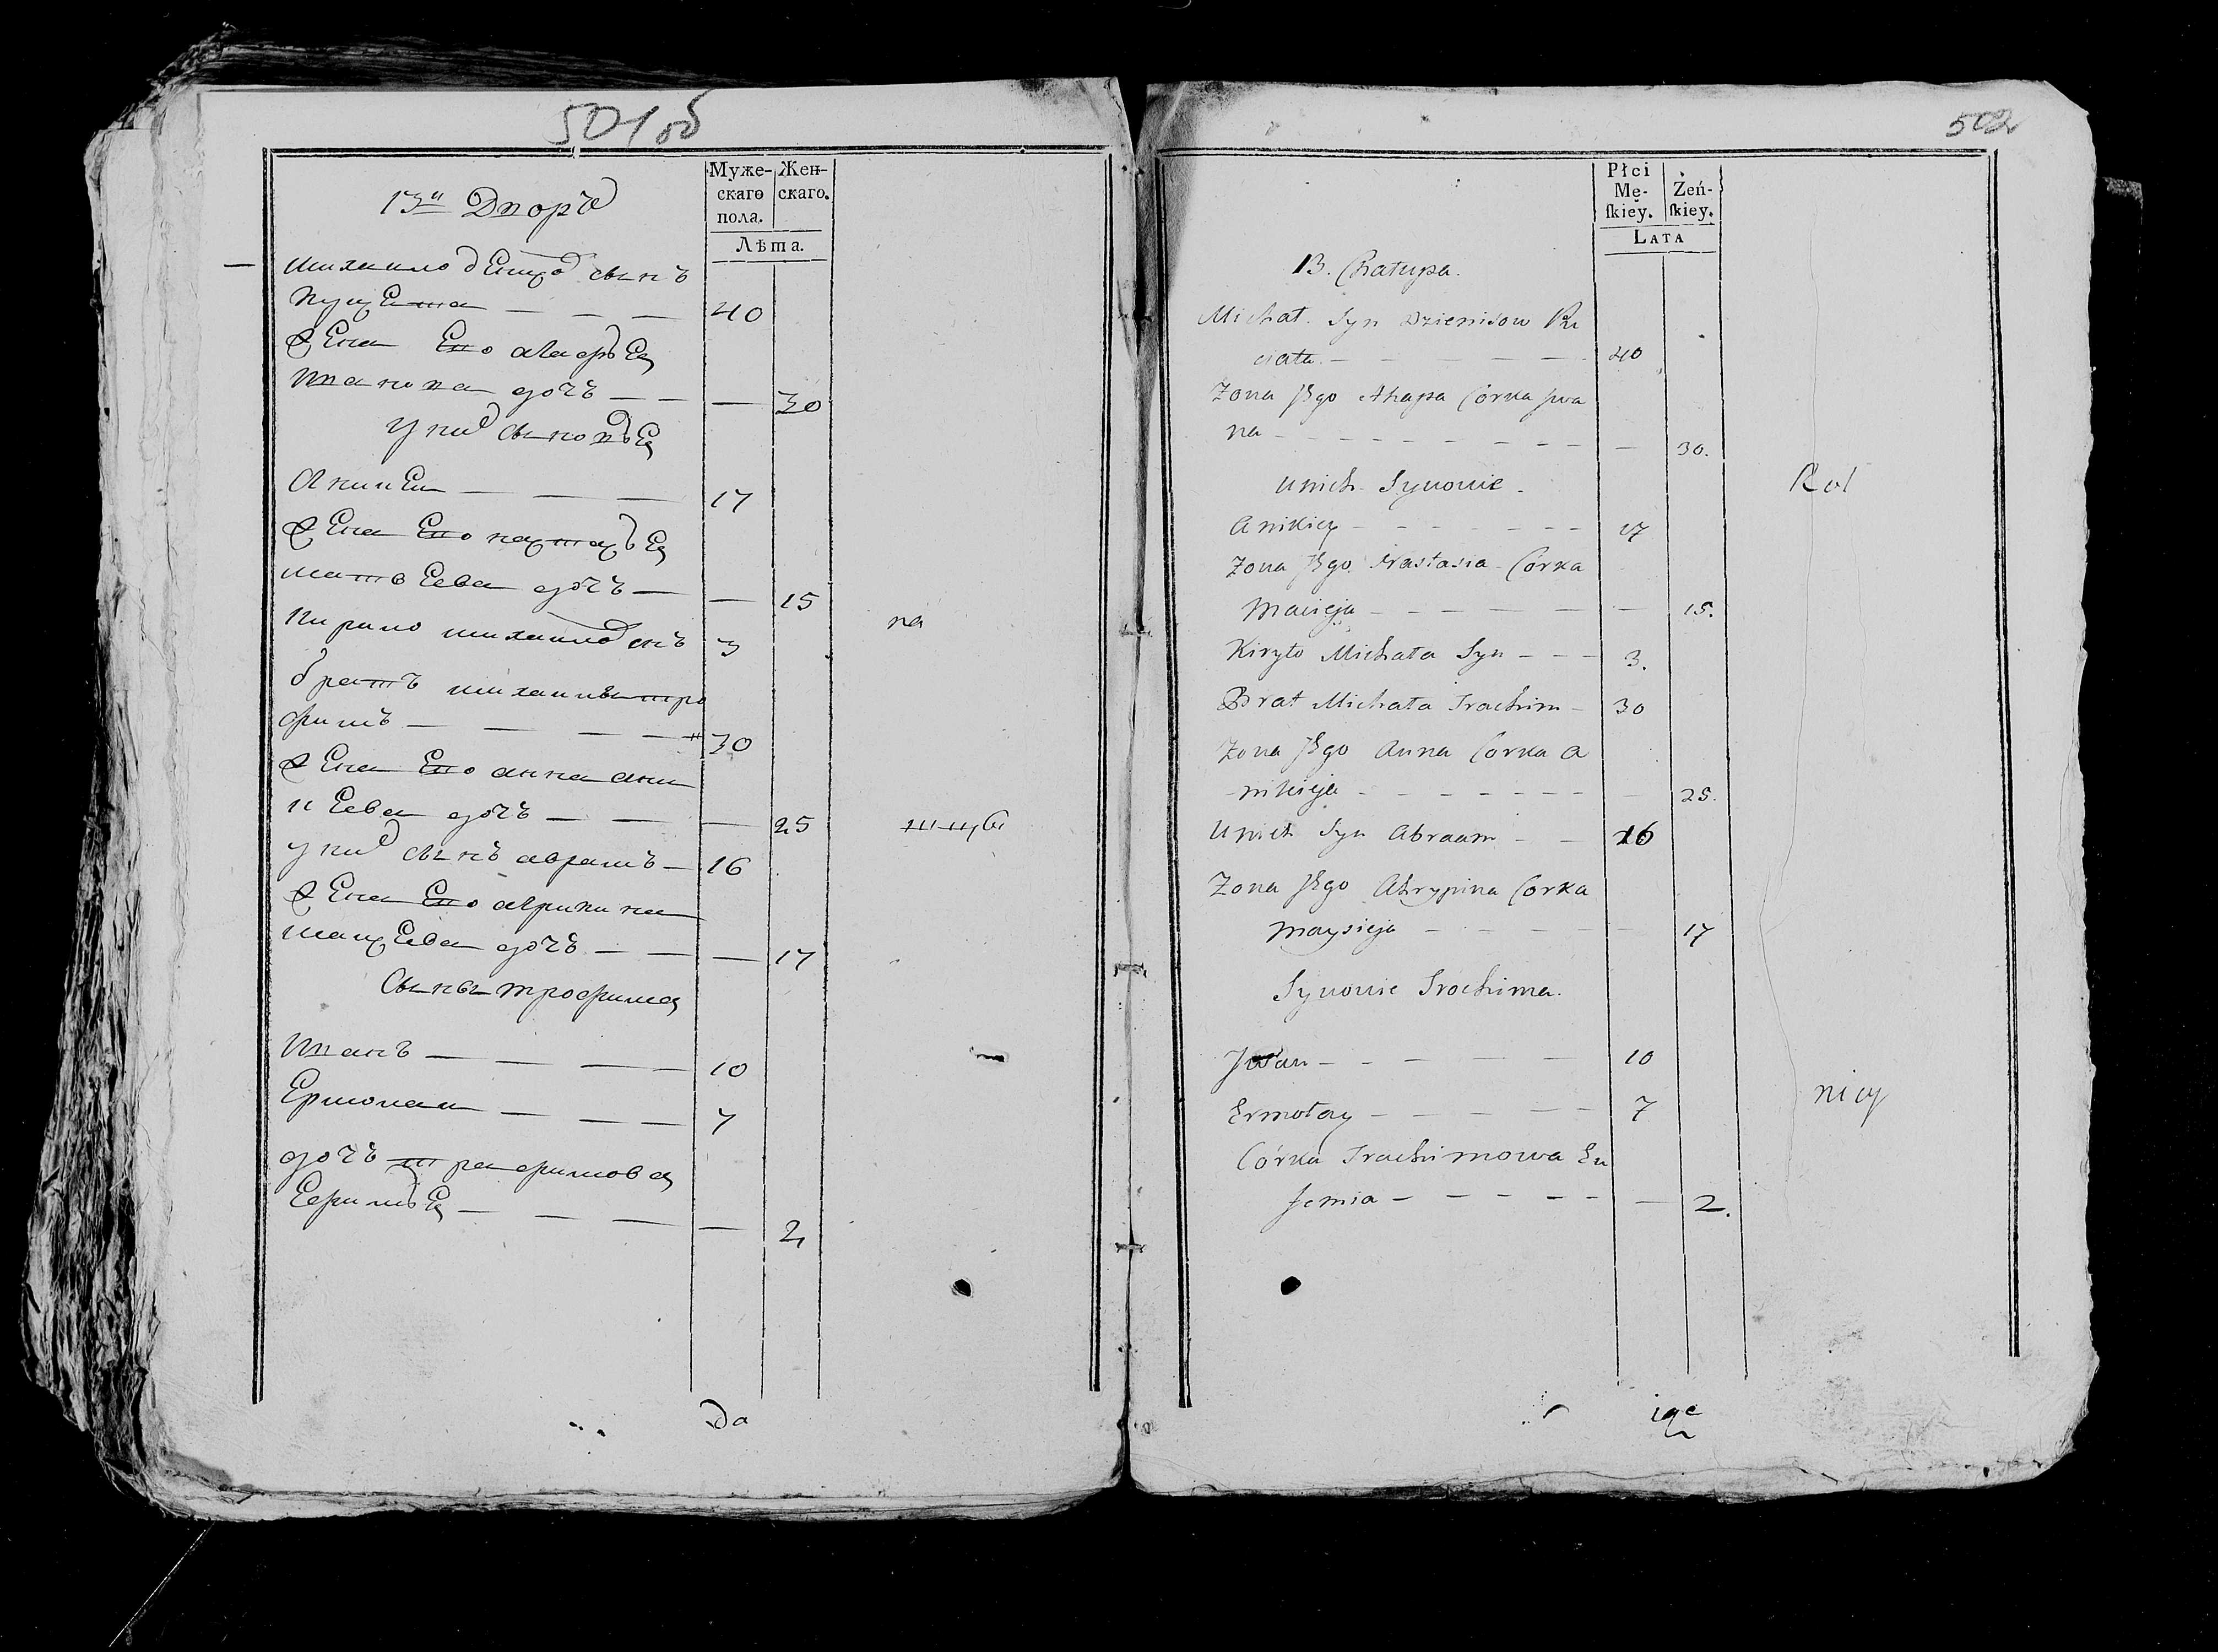 501 об
Муже-
скаго
пола.
Жен-
скаго.
Лѣта.
13й Дворъ
Михаило сынъ
40
Жена Его
Иванова дочъ — — — 30
у них сыновья
Аникеи — — — 17
Жена Его
Матвеева дочъ — — 15
Кирило Михаилов снъ 3
братъ Михаилы Тро
фимъ — — — — 30
Жена Его Анна Ани
кеева дочъ — — — 25
у них сынъ Аврамъ — 16
Жена Его Агрипина
дочъ — — — 17
Сыны Трофима
Иванъ — — — — 10
Ермолаи — — — — 7
дочъ Трафимова
— — — — 2
па
да
502
Płci
Mę-
ſkiey.
Żeń-
ſkiey.
LATA
13. Chatupa.
Michał Syn Dzienisow Ku
ciata — — — — — 40
Zona Jego Ahapa Corka Jwa
na — — — — — — — — 30.
unich Synowie
Anikiey — — — — — — 17
Zona Jego Nastasia Córka
Macieja — — — — — — 15.
Kiryło Michała Syn — — — 3.
Brat Michała Trachim — 30
Zona Jego Anna Corka A
nikieja — — — — — — — 25.
Unich Syn Abraam — — 16
Zona Jego Ahrypina Corka
Maysieja — — — — — — 17
Synowie Trochima.
Jwan — — — — — 10
Ermołay — — — — — 7
Córka Trachimowa Eu
femia — — — — — — 2.
Rol
nicy